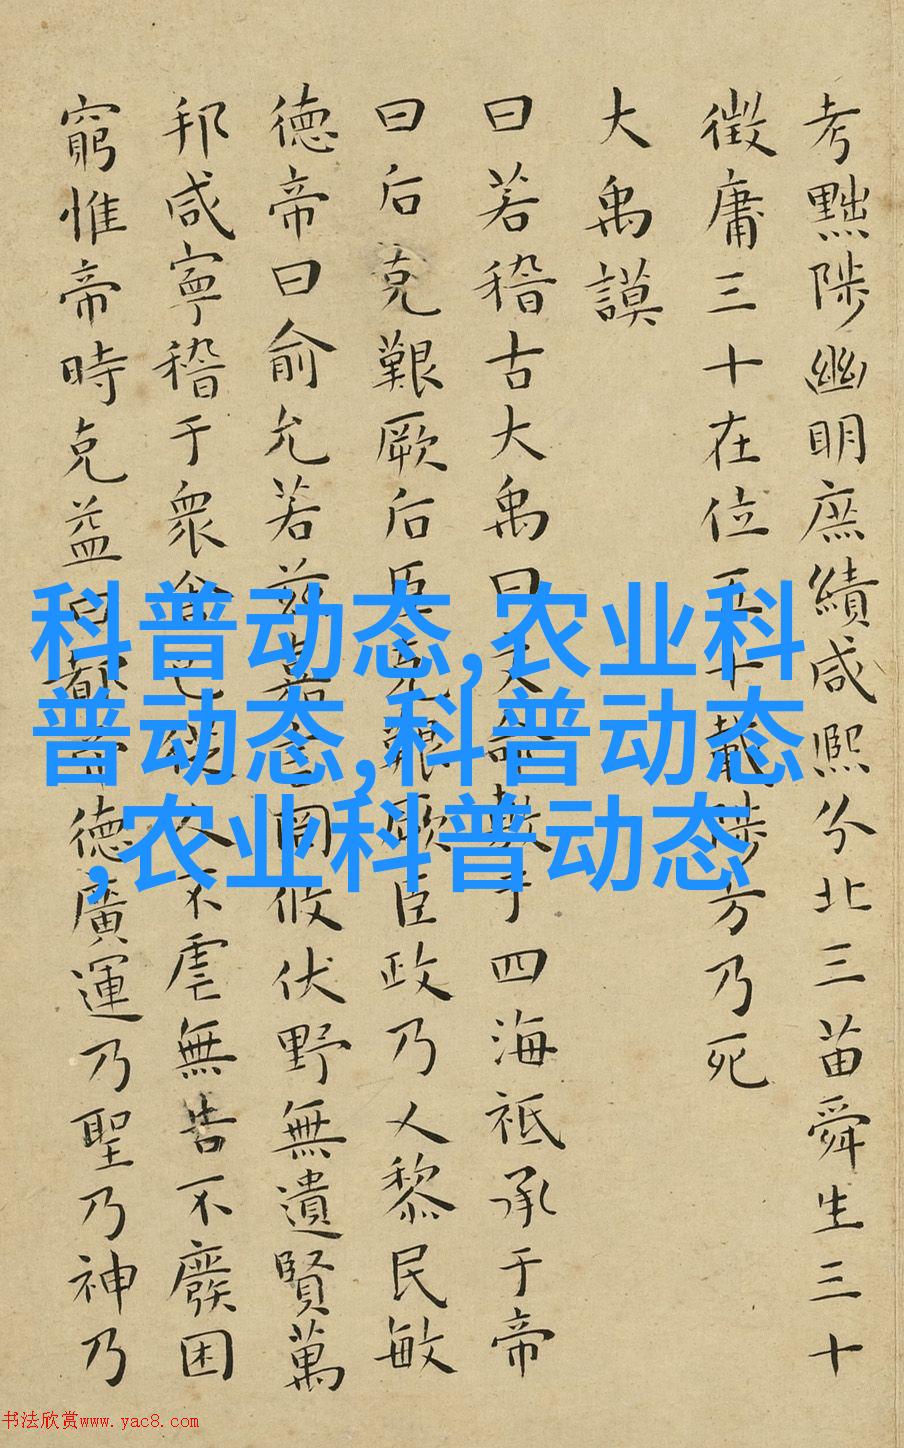 考黜陟幽明庶績咸熙分北三苗舜生三十
徵庸三十在位五十載陟方乃死
大禹謨
曰若稽古大禹曰文命敷于四海祗承于帝
曰后克艱厥后臣克艱厥臣政乃乂黎民敏
德帝曰俞允若茲嘉言罔攸伏野無遺賢萬
邦咸寧稽于衆舍己從人不虐無告不廢困
窮惟帝時克益曰都帝德廣運乃聖乃神乃
科普动态,农业科
普动态,科普动态
,农业科普动态
书法欣赏www.yac8.com